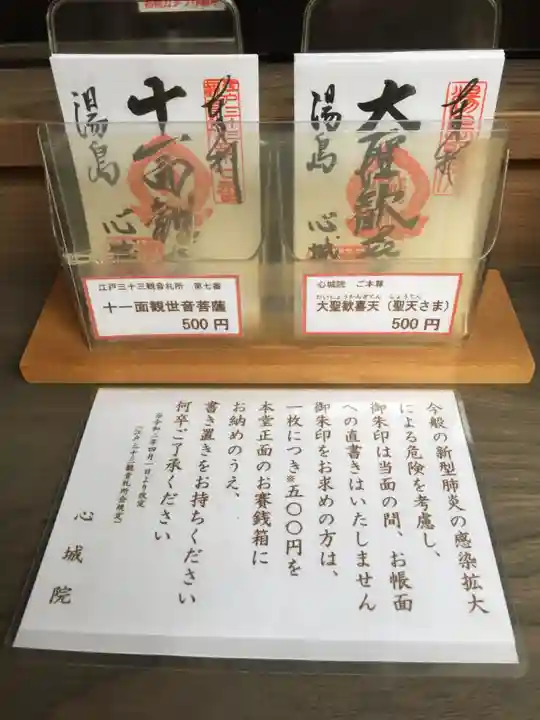 奉拝
十一面観
湯島
心城
奉拝
大聖歓喜
湯島
心城
江戸三十三観音札所 第七番
十一面観世音菩薩
500円
心城院 ご本尊
だいしょうかんぎてん しょうてん
大聖歓喜天(聖天さま)
500円
今般の新型肺炎の感染拡大
による危険を考慮し、
御朱印は当面の間、お帳面
への直書きはいたしません
御朱印をお求めの方は、
一枚につき※五〇〇円を
本堂正面のお賽銭箱に
お納めのうえ、
書き置きをお持ちください
何卒ご了承ください
※令和二年四月一日より改定
(江戸三十三観音札所会規定)
心城院